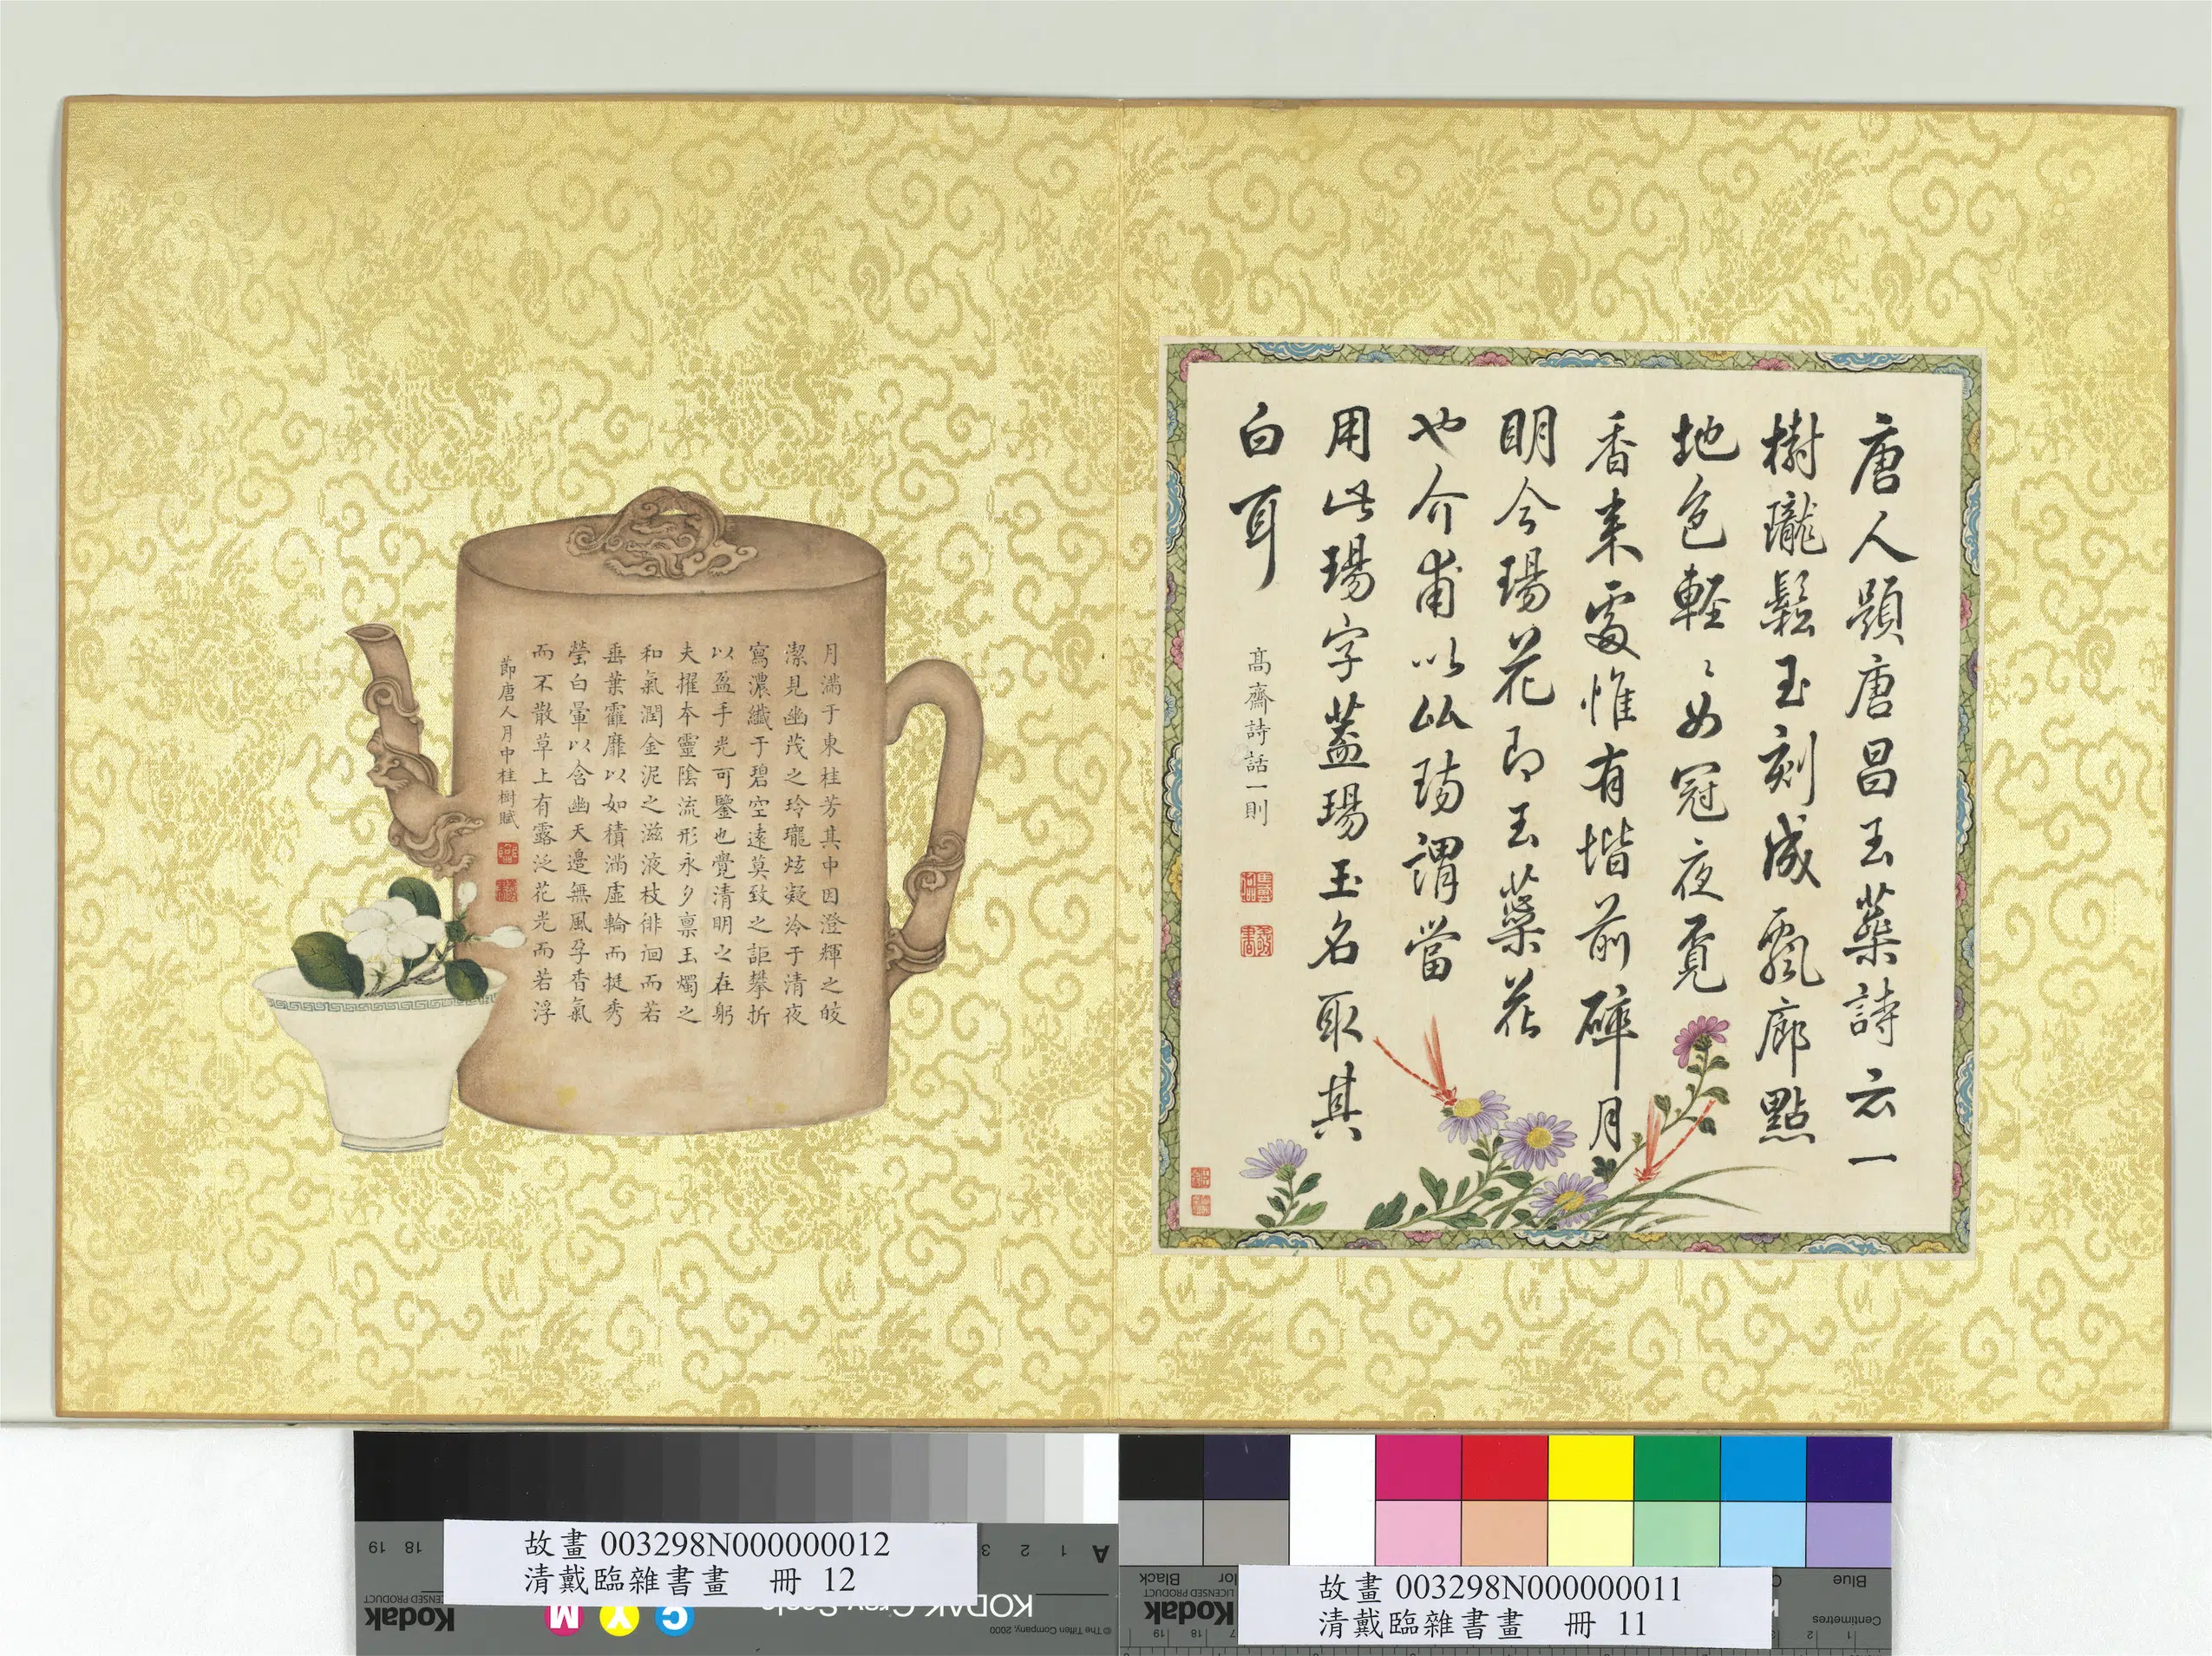 唐人題唐昌玉蘂詩云一
樹瓏鬆玉刻成飄廊點
地色輕〻女冠夜覔
香来處惟有堦前碎月
明今瑒花即玉蘂花
也介甫以比瑒謂當
用此瑒字蓋瑒玉名取其
白耳
高齋詩話一則
月滿于東桂芳其中因澄輝之皎
潔見幽茂之玲瓏炫凝冷于清夜
寫濃纖于碧空遠莫致之詎攀折
以盈手光可鑒也覺清明之在躬
夫擢本靈陰流形永夕禀玉燭之
和氣潤金泥之滋液枝徘徊而若
垂葉靃靡以如積滿虛輪而挺秀
瑩白暈以含幽天邊無風孕香氣
而不散草上有露泛花光而若浮
節唐人月中桂樹賦
故畫 003298N000000012
清戴臨雜書畫 冊 12
故畫 003298N000000011
清戴臨雜書畫 冊 11
A 1 2 3
18 19
KODAK Gray Scale
Kodak
LICENSED PRODUCT
© The Tiffen Company, 2000
C Y M
Blue
Centimetres
Black
Kodak
LICENSED PRODUCT